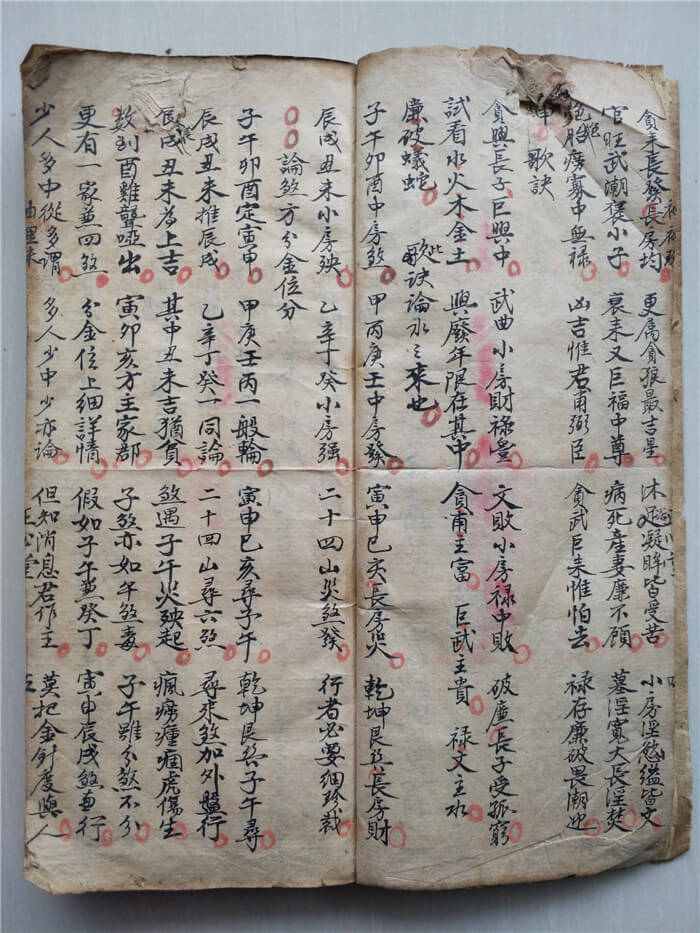 貪来長發長房均 更属貪狼最吉星 沐 凝眸皆受苦 小房淫慾縊皆文
官旺武潮獲小子 衰来又巨福中尊 病死産妻廉不顧 墓淫寬大長淫
胎廣寡中無禄 凶吉惟君甫弼臣 貪武巨来惟怕去 禄存廉破畏潮迎
歌訣
貪興長子巨興中 武曲小房財禄豊 文敗小房禄中敗 破廉長子受孤窮
試看水火木金土 興廢年限在其中 貪甫主富 巨武主貴 禄文主水
廉破蟻蛇 此歌訣論水之来也
子午卯酉中房煞 甲丙庚壬中房發 寅申巳亥長房火 乾坤艮巽長房財
辰戌丑未小房殃 乙辛丁癸小房强 二十四山災煞發 行者必要細珍裁
論煞方分金位分
子午卯酉定寅申 甲庚壬丙一般輪 寅申巳亥尋子午 乾坤艮巽子午尋
辰戌丑未推辰戌 乙辛丁癸一同論 二十四山尋六煞 尋來煞加外盤行
辰戌丑未為上吉 其中丑未吉猶貪 煞遇子午火殃起 瘋癆瘴痼虎傷生
数到酉雞聾啞出 寅卯亥方主家部 子煞亦如午煞毒 子午雖分煞不分
更有一家兼四煞 分金位上細詳情 假如子午兼癸丁 寅申辰戌煞兼行
少人多中從多謂 多人少中少亦論 但知消息君作主 莫把金針度與人